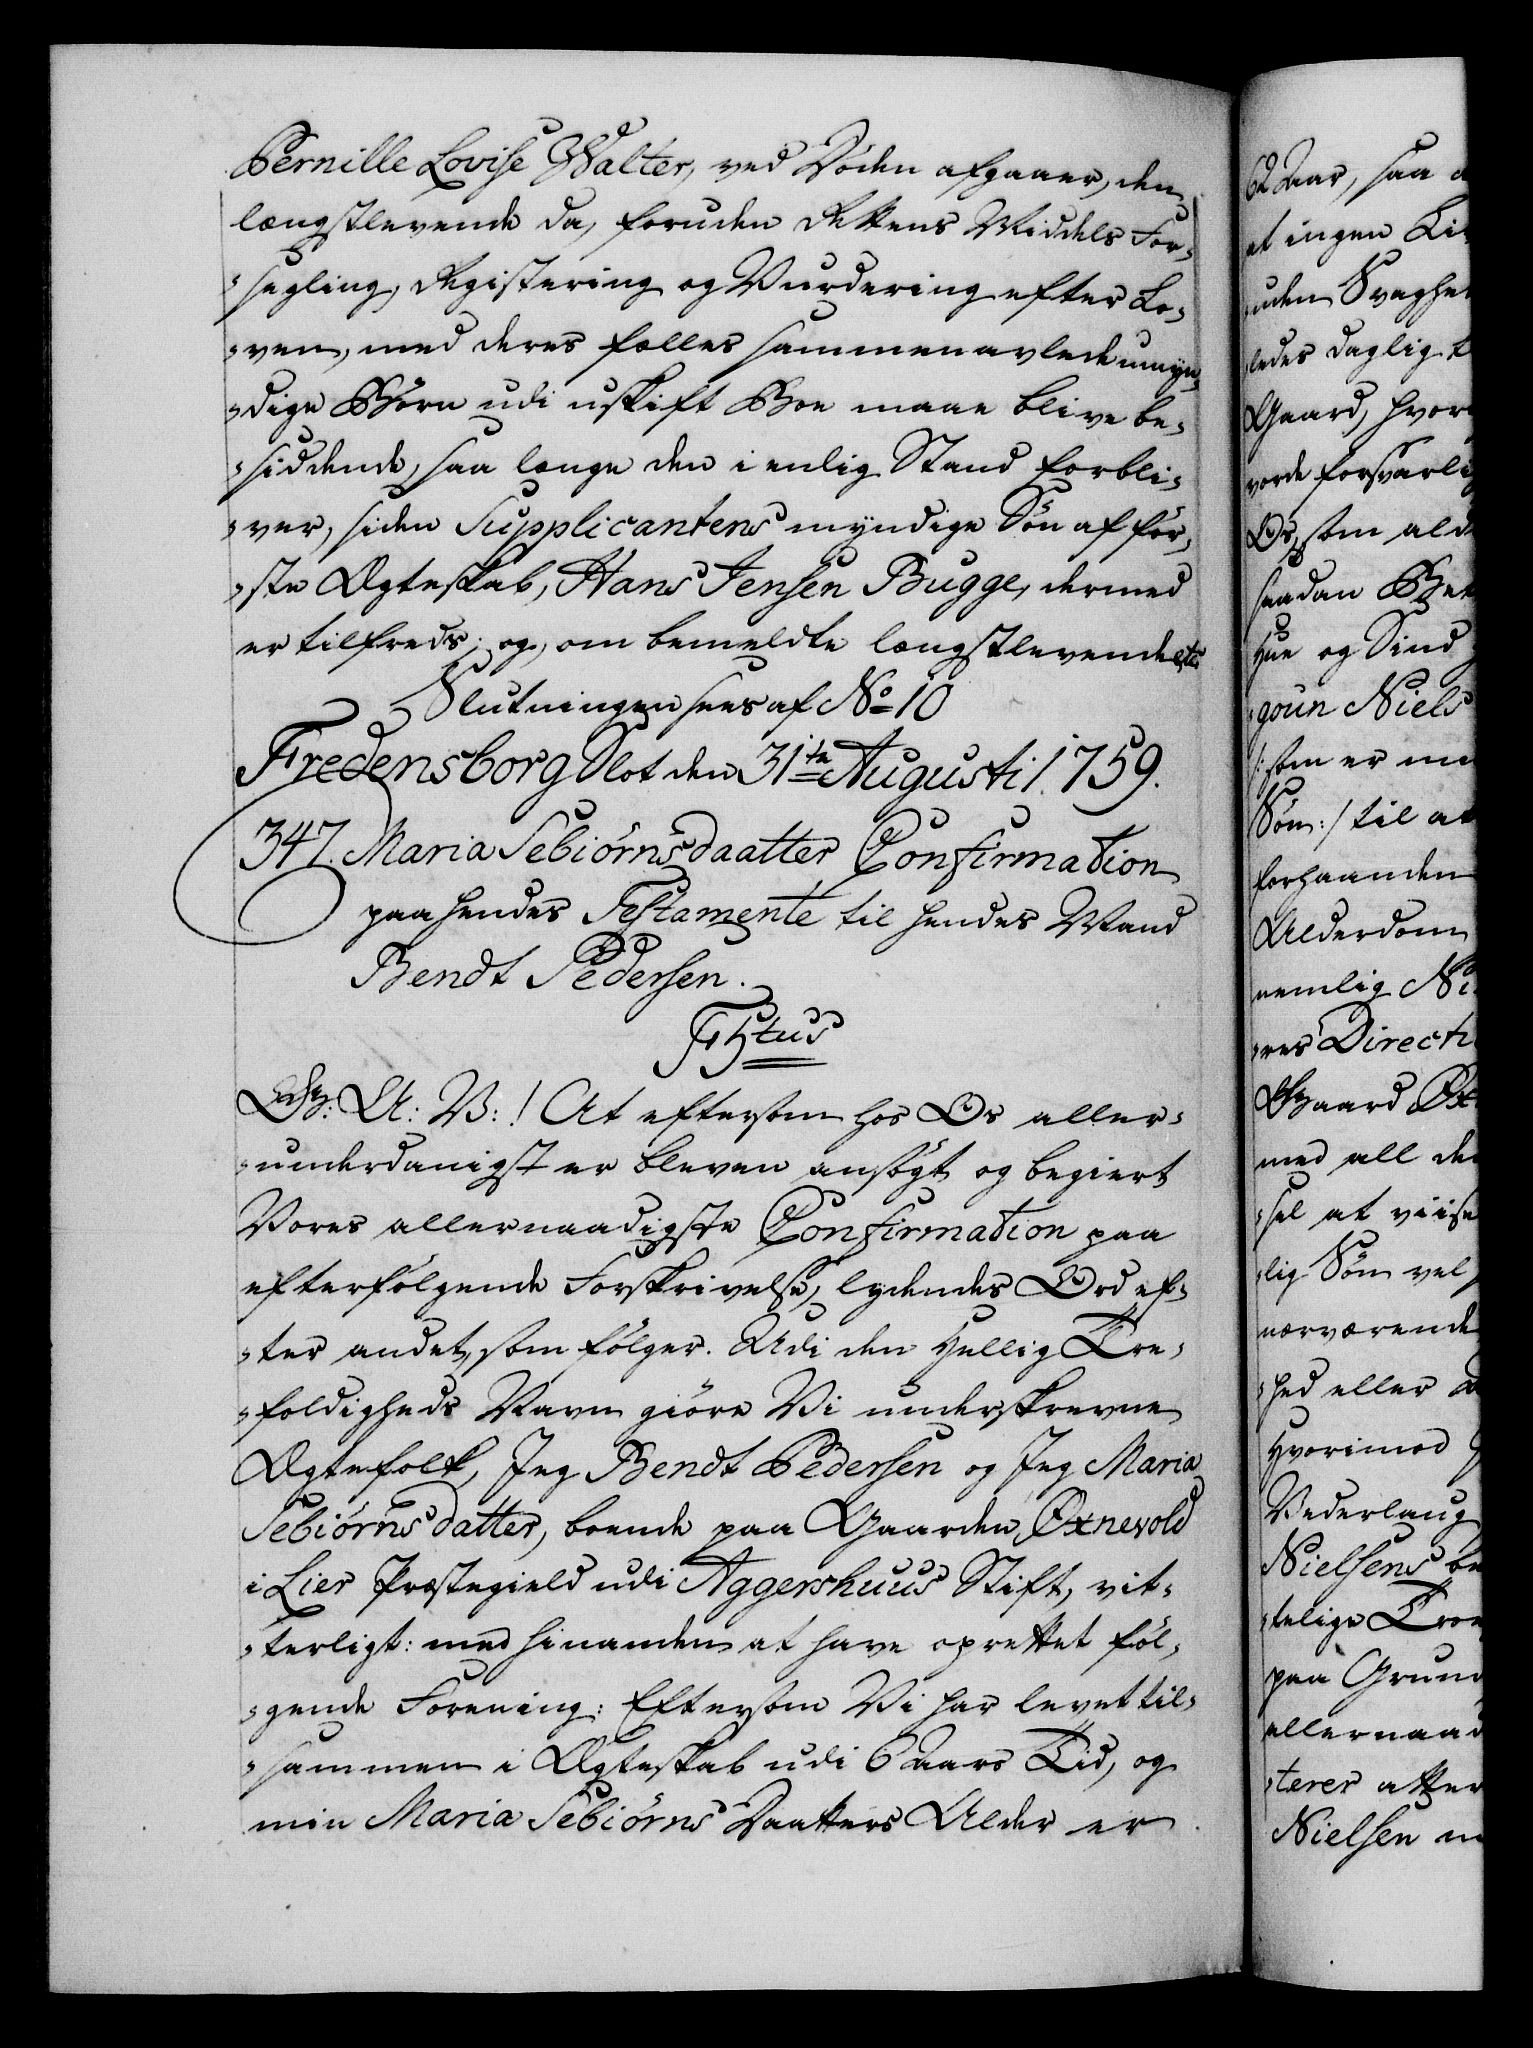 Pernille Lovise Walter, ved Døden afgaaer, den
længstlevende da, foruden Rettens Middels For-
segling, Registering og Vurdering efter Lo-
ven, med deres fælles sammenavlede umyn-
dige Børn udi uskift Boe maae blive be-
siddende, saa længe den i enlig Stand forbli-
ver, siden Supplicantens myndige Søn af før-
ste Ægteskab, Hans Jensen Bugge, dermed
er tilfreds; og, om bemeldte længstlevende etc
Slutningen sees af No 10
Fredensborg Slot den 31te Augusti 1759.
347. Maria Sebiørnsdaatter Confirmation
paa hendes Testamente til hendes Mand
Bendt Pedersen.
F 5tus
G: A: V:! At eftersom hos Os aller-
underdanigst er bleven ansøgt og begiert
Vores allernaadigste Confirmation paa
efterfølgende Forskrivelse, lydendes Ord ef-
ter andet, som følger. Udi den Hellig Tre-
foldigheds Navn giøre Vi underskrevne
Ægtefolk, Jeg Bendt Pedersen og Jeg Maria
Sebiørns datter, boende paa Gaarden Øxnevold
i Lier Præstegield udi Aggershuus Stift, vit-
terligt: med hinanden at have oprettet føl-
gende Forening: Eftersom Vi har levet til-
sammen i Ægteskab udi 6 Aars Tid, og
min Maria Sebiørns Daatters Alder er
62 Aar, saa
at ingen
uden Svaghe
ledes daglig
Gaard, hvor
vorde forsvarli
Os, som ald
saadan
Hue og Sind
goun Niels
/: som er
Søn:/ til at
forhaanden
Alderdom
nemlig Ni
res Directi
Gaard Øx
med all de
sel at viise
lig Søn vel
nærværende
hed eller
Hvorimod
Vederlaug
Nielsens be
telige Troe
paa Grund
allernaad
terer atter
Nielsen